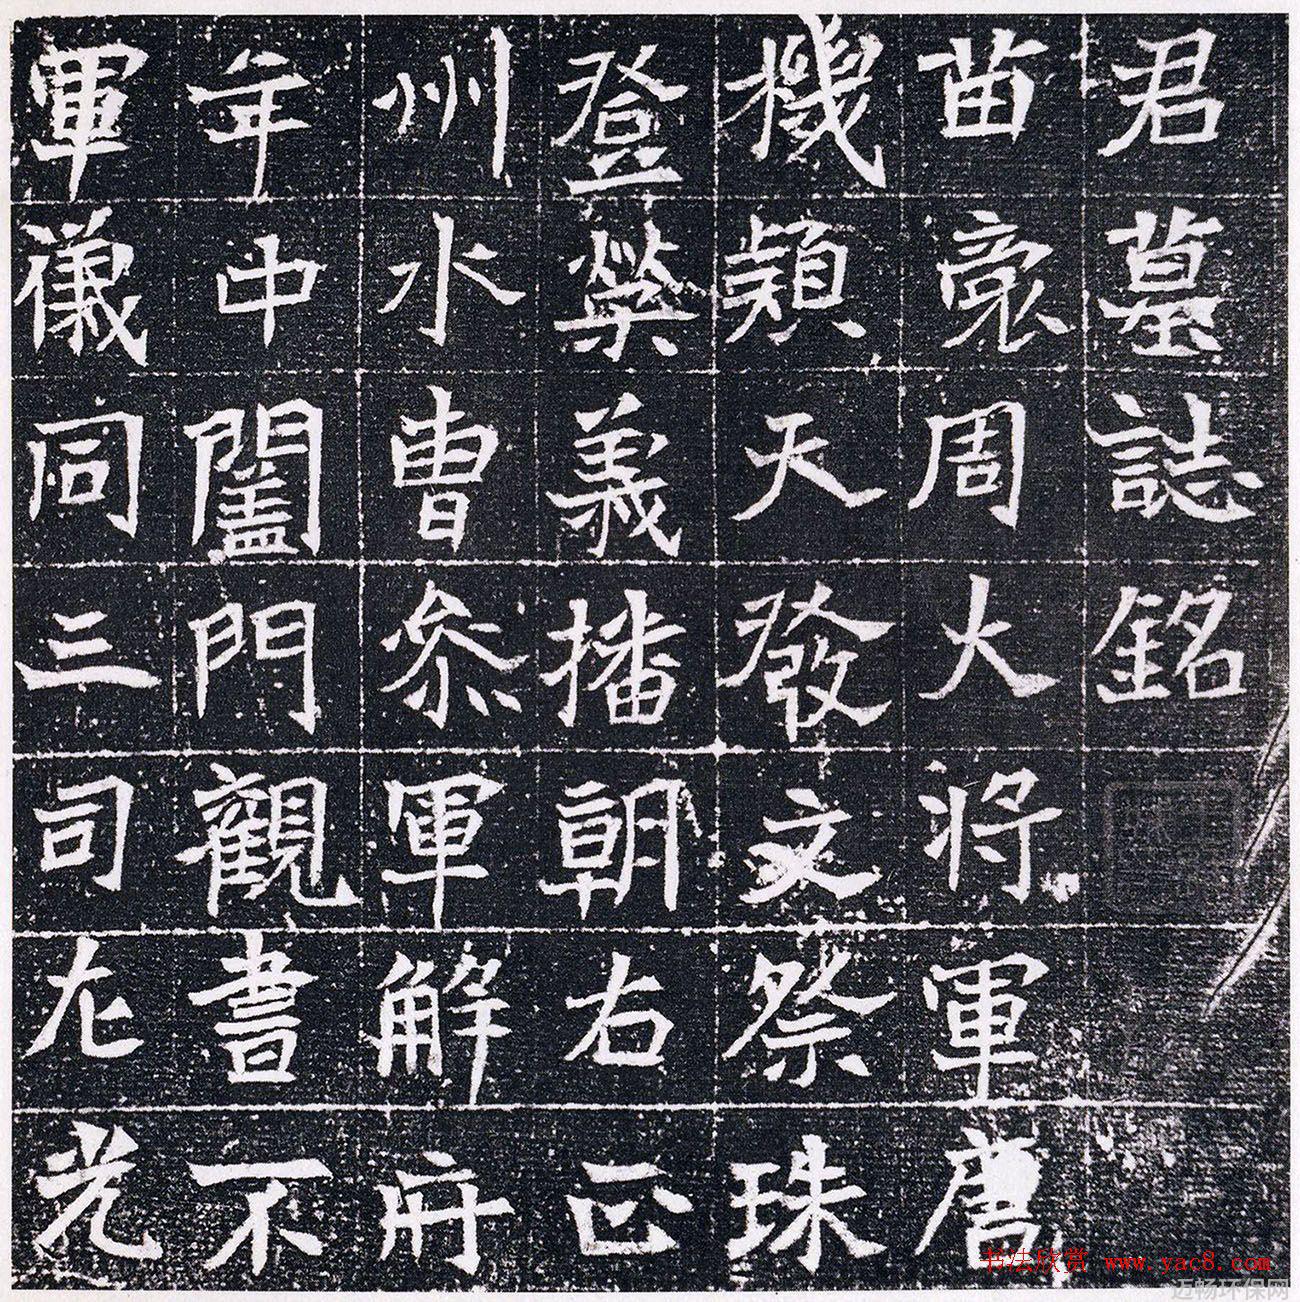 君墓誌銘
苗裔周大將軍
機穎天發文祭珠
登榮義播朝右正
州水曹叅軍解
年中闔門觀書不
軍儀同三司左光
书法欣赏 www.yac8.com
迈畅环保网